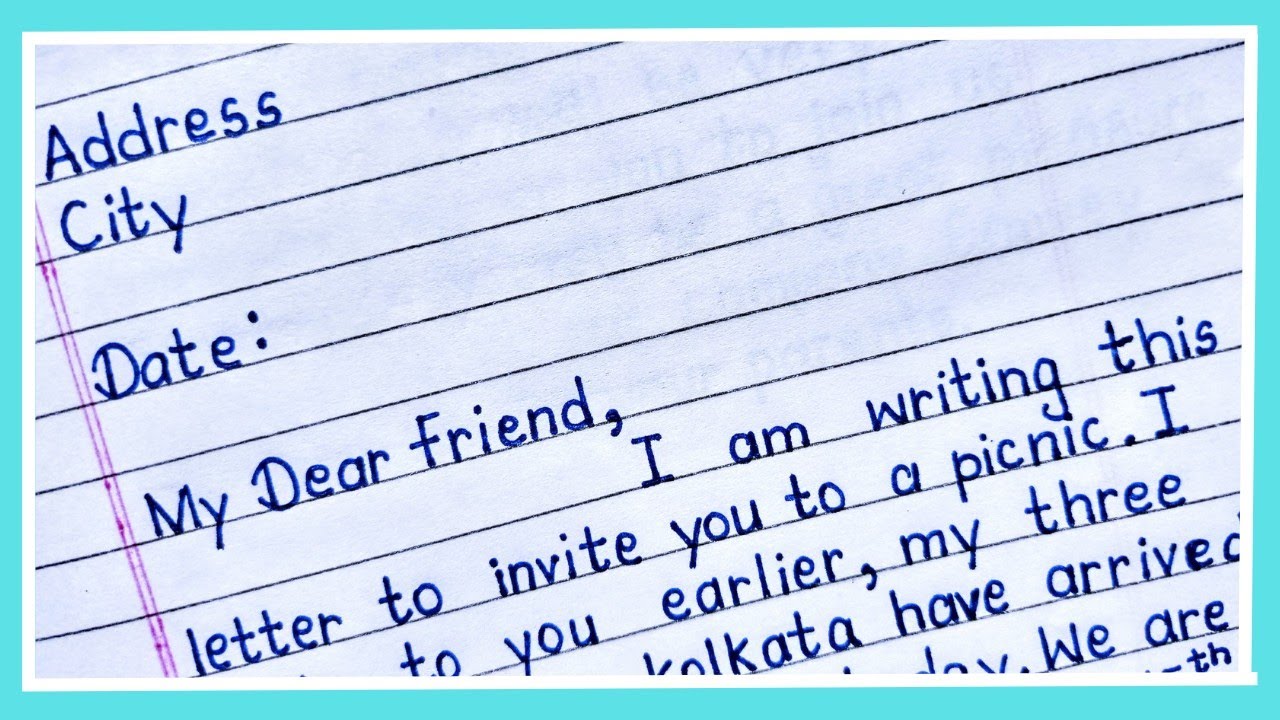 Address
City
Date:
My Dear friend,
I am writing this
letter to invite you to a picnic. I
to you earlier, my three
kolkata have arrived
day. We are
th